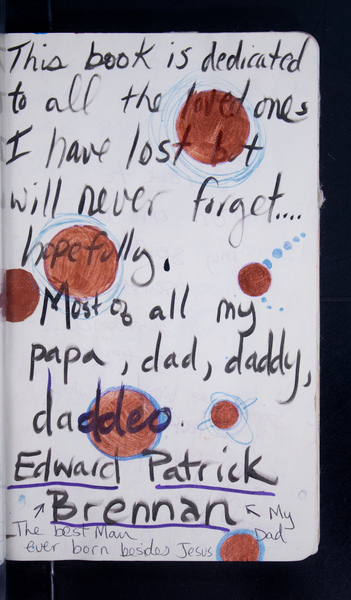 This book is dedicated
to all the loved ones
I have lost but
will never forget....
hopefully.
Most of all my
papa, dad, daddy,
daddeo.
Edward Patrick
Brennan
My
Dad
The best Man
ever born besides Jesus